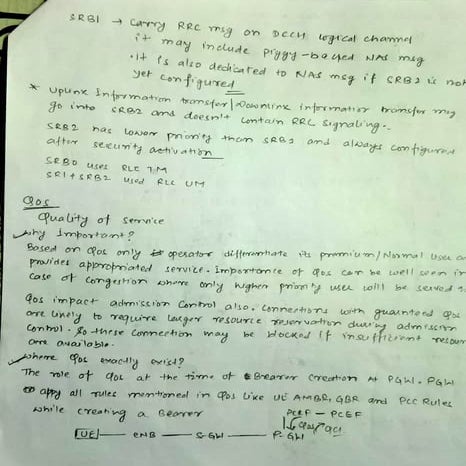 SRB1 → Carry RRC msg on DCCH logical channel
it may include piggy-backed NAS msg
. It is also dedicated to NAS msg if SRB2 is not
yet configured
* Uplink Information transfer/Downlink information transfer msg
go into SRB2 and doesn't contain RRC signaling.
SRB2 has lower priority than SRB1 and always configured
after security activation
SRB0 uses RLC TM
SR1+SRB2 used RLC UM
QoS
Quality of service
✓why Important?
Based on QoS only operator differentiate its premium/Normal user
provides appropriated service. Importance of QoS can be well seen in
case of congestion where only higher priority user will be served
QoS impact admission control also. connections with guanteed QoS
are likely to require larger resource reservation during admission
control. So these connection may be blocked if insufficient
are available.
✓where QoS exactly exist?
The role of QoS at the time of Bearer creation at PGW. PGW
apply all rules mentioned in QoS like UE AMBR, GBR and PCC Rules
while creating a Bearer
PCRF - PCEF
QoS QCI
UE — eNB — S-GW — P-GW